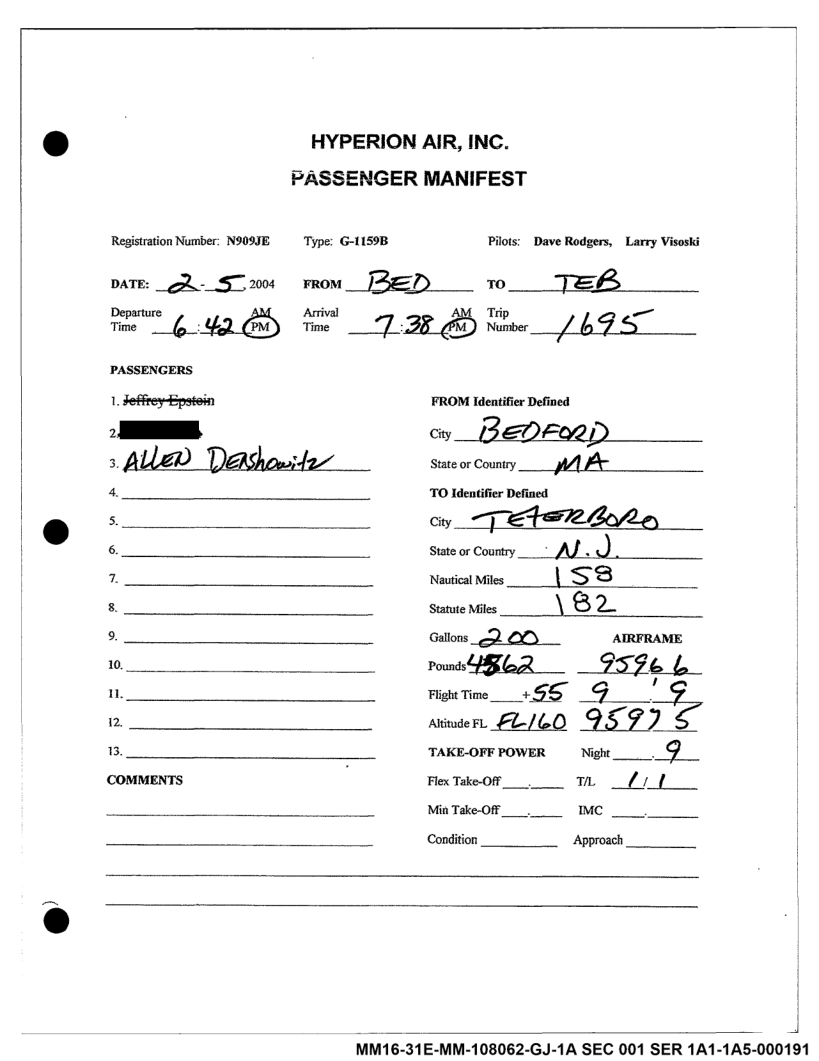 HYPERION AIR, INC.
PASSENGER MANIFEST
Registration Number: N909JE Type: G-1159B Pilots: Dave Rodgers, Larry Visoski
DATE: 2 - 5, 2004 FROM BED TO TEB
Departure Time 6 : 42 AM PM Arrival Time 7 : 38 AM PM Trip Number 1695
PASSENGERS
1. Jeffrey Epstein FROM Identifier Defined
2. City BEDFORD
3. ALLEN DERShowitz State or Country MA
4. TO Identifier Defined
5. City TETERBORO
6. State or Country N.J.
7. Nautical Miles 158
8. Statute Miles 182
9. Gallons 200 AIRFRAME
10. Pounds 4862 9596 6
11. Flight Time +55 9 . 9
12. Altitude FL FL160 9597 5
13. TAKE-OFF POWER Night . 9
COMMENTS Flex Take-Off . T/L 1 / 1
Min Take-Off . IMC .
Condition Approach
MM16-31E-MM-108062-GJ-1A SEC 001 SER 1A1-1A5-000191